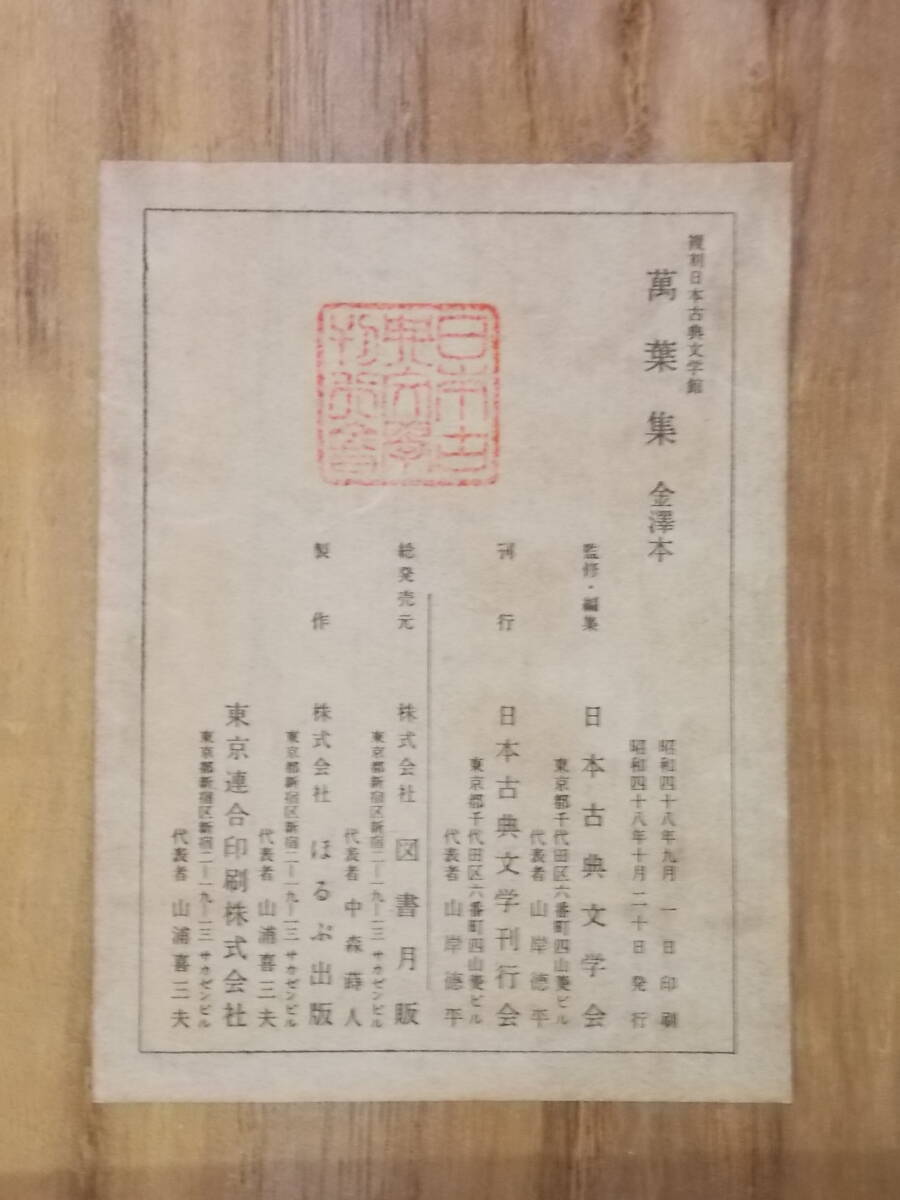 複刻日本古典文学館
萬葉集 金澤本
昭和四十八年九月一日印刷
昭和四十八年十月二十日発行
監修・編集 日本古典文学会
東京都千代田区六番町四山菱ビル
代表者 山岸徳平
刊行 日本古典文学刊行会
東京都千代田区六番町四山菱ビル
代表者 山岸徳平
総発売元 株式会社 図書月販
東京都新宿区新宿二―一九―一三 サカゼンビル
代表者 中森蒔人
製作 株式会社 ほるぷ出版
東京都新宿区新宿二―一九―一三 サカゼンビル
代表者 山浦喜三夫
東京連合印刷株式会社
東京都新宿区新宿二―一九―一三 サカゼンビル
代表者 山浦喜三夫
日本古
典文学
刊行會